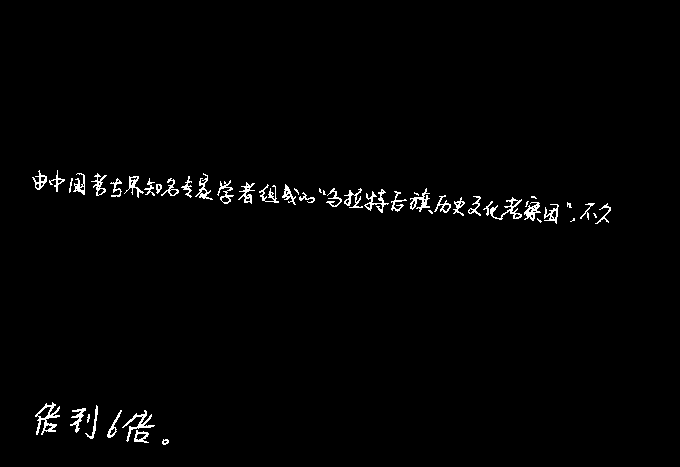 由中国考古界知名专家学者组成的“乌拉特后旗历史文化考察团”，不久
倍到6倍。